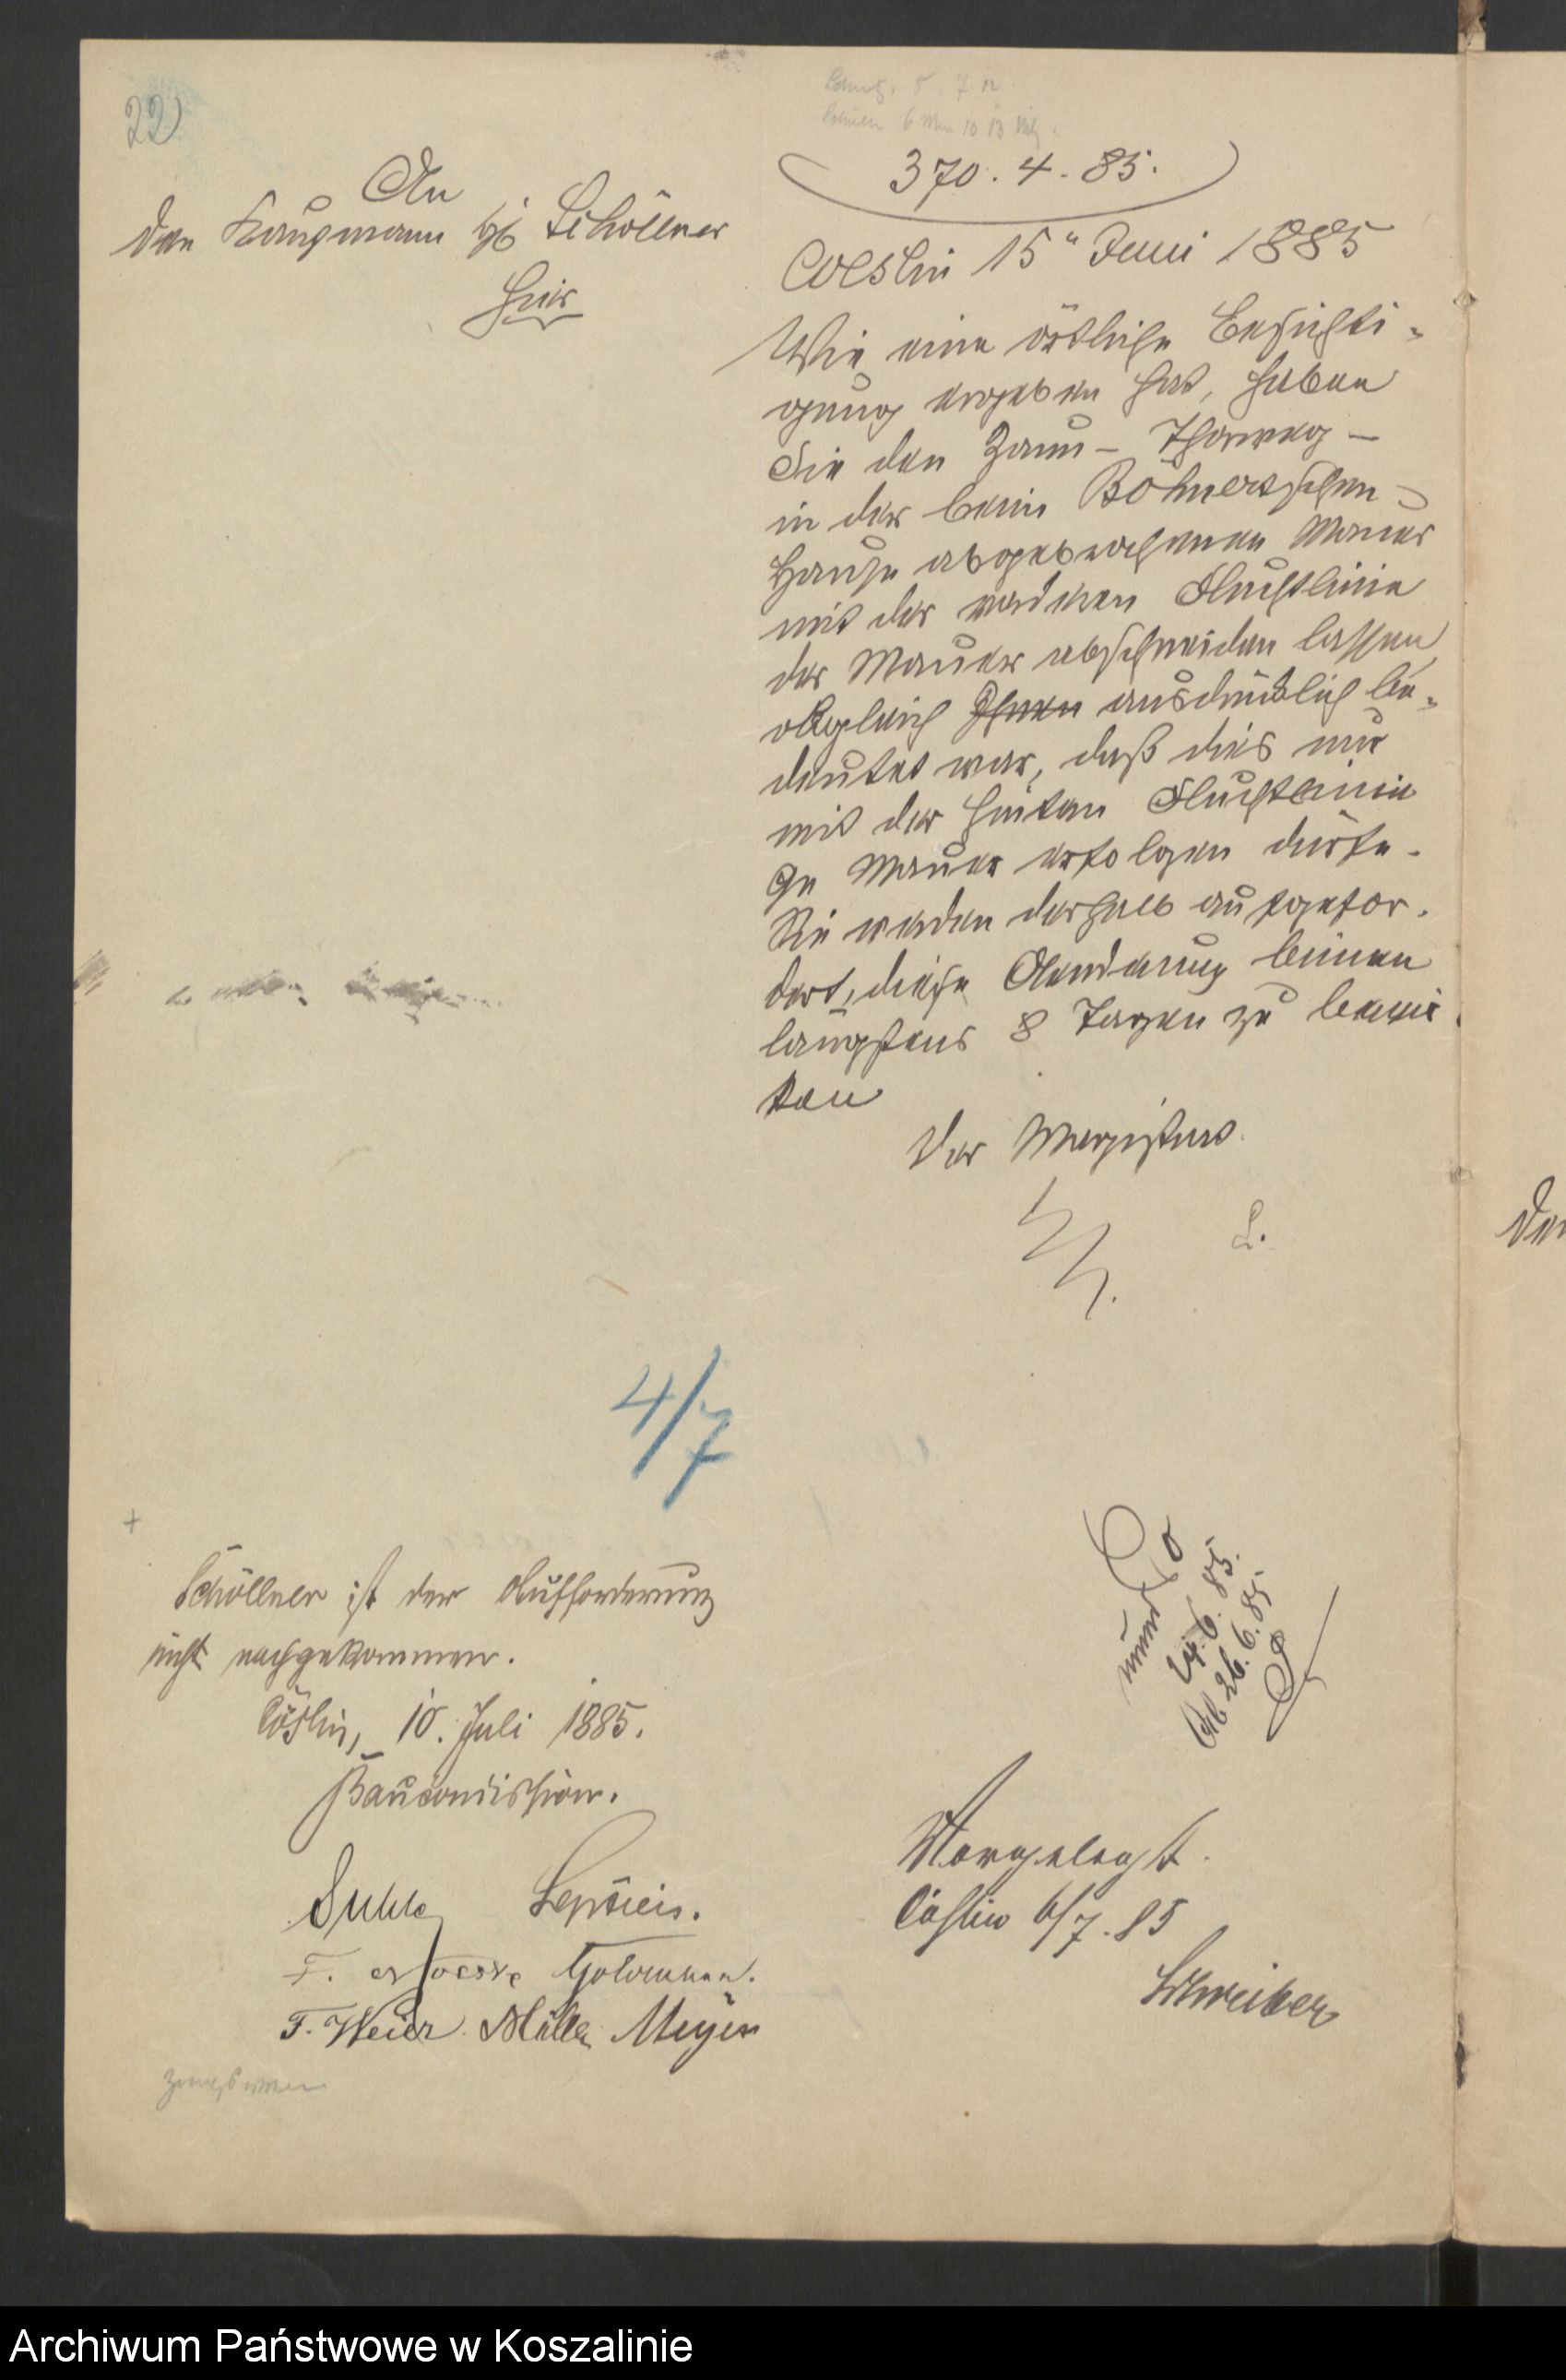 22
370. 4. 85.
An
den Kaufmann Schöllner
hier
Coeslin 15 Juni 1885
Wie eine örtliche Besichti-
gung ergeben hat, haben
Sie den Zaun - Thorweg -
in der beim Böhmerschen
Hause abgebrochenen Mauer
mit der vorderen Fluchtlinie
der Mauer abschneiden lassen
obgleich Ihnen ausdrücklich be-
deutet war, daß dies nur
mit der hinteren Fluchtlinie
Mauer erfolgen dürfe.
Sie werden deshalb aufgefor-
dert, diese Aenderung binnen
längstens 8 Tagen zu bewir-
ken
Der Magistrat.
L.
4/7
Schöllner ist der Aufforderung
nicht nachgekommen.
Cöslin, 10. Juli 1885.
Baucommission.
F. Weier. Müller Meyer
mund
24. 6. 85.
Ab 26. 6. 85
Vorgelegt.
Cöslin 6/7. 85
Schreiber
Den
Archiwum Państwowe w Koszalinie